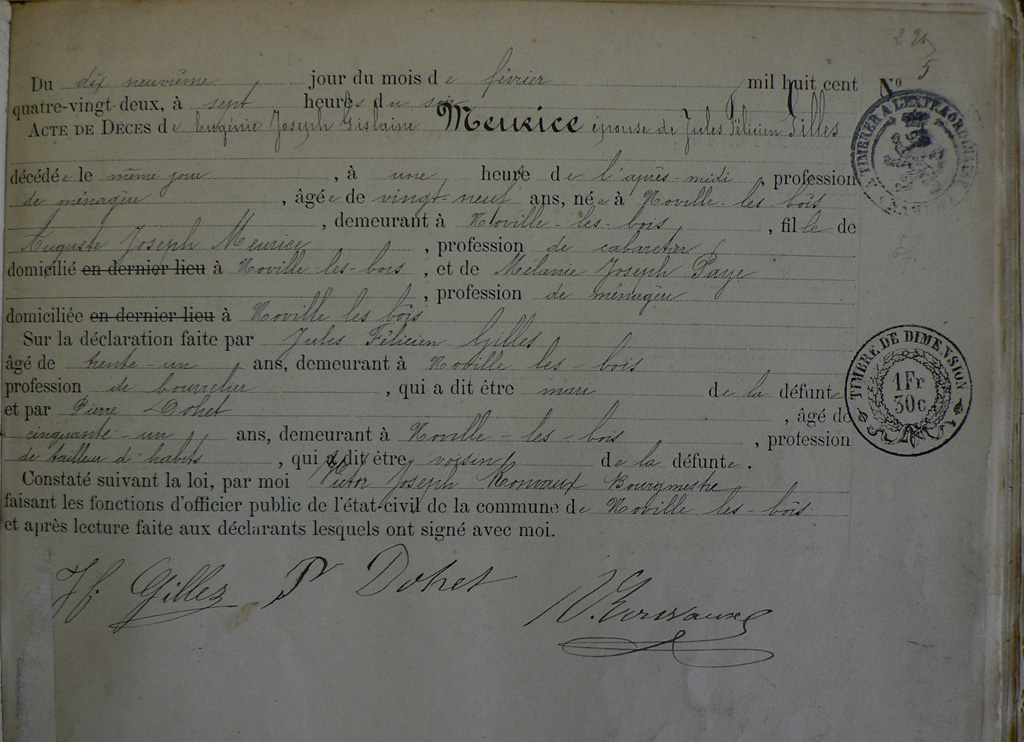 Du dix neuvième jour du mois de février mil huit cent
quatre-vingt-deux, à sept heures du soir
N° 5
ACTE DE DÉCÈS de Eugénie Joseph Gislaine Meurice épouse de Jules Félicien Gilles
décédée le même jour, à une heure de l'après-midi, profession
de ménagère, âgée de vingt-neuf ans, née à Noville-les-bois
, demeurant à Noville-les-bois, fille de
Auguste Joseph Meurice, profession de cabaretier
domicilié en dernier lieu à Noville les-bois, et de Mélanie Joseph Paye
, profession de ménagère
domiciliée en dernier lieu à Noville les bois
Sur la déclaration faite par Jules Félicien Gilles
âgé de trente-un ans, demeurant à Noville les-bois
profession de bourrelier, qui a dit être mari de la défunte
et par Pierre Dohet, âgé de
cinquante-un ans, demeurant à Noville-les-bois, profession
de tailleur d'habits, qui a dit être voisin de la défunte.
Constaté suivant la loi, par moi Victor Joseph Bourgmestre
faisant les fonctions d'officier public de l'état-civil de la commune de Noville les-bois
et après lecture faite aux déclarants lesquels ont signé avec moi.
Jf. Gillez P Dohet
TIMBRER A L'EXTRAORDINAIRE
TIMBRE DE DIMENSION
1 Fr
30 c